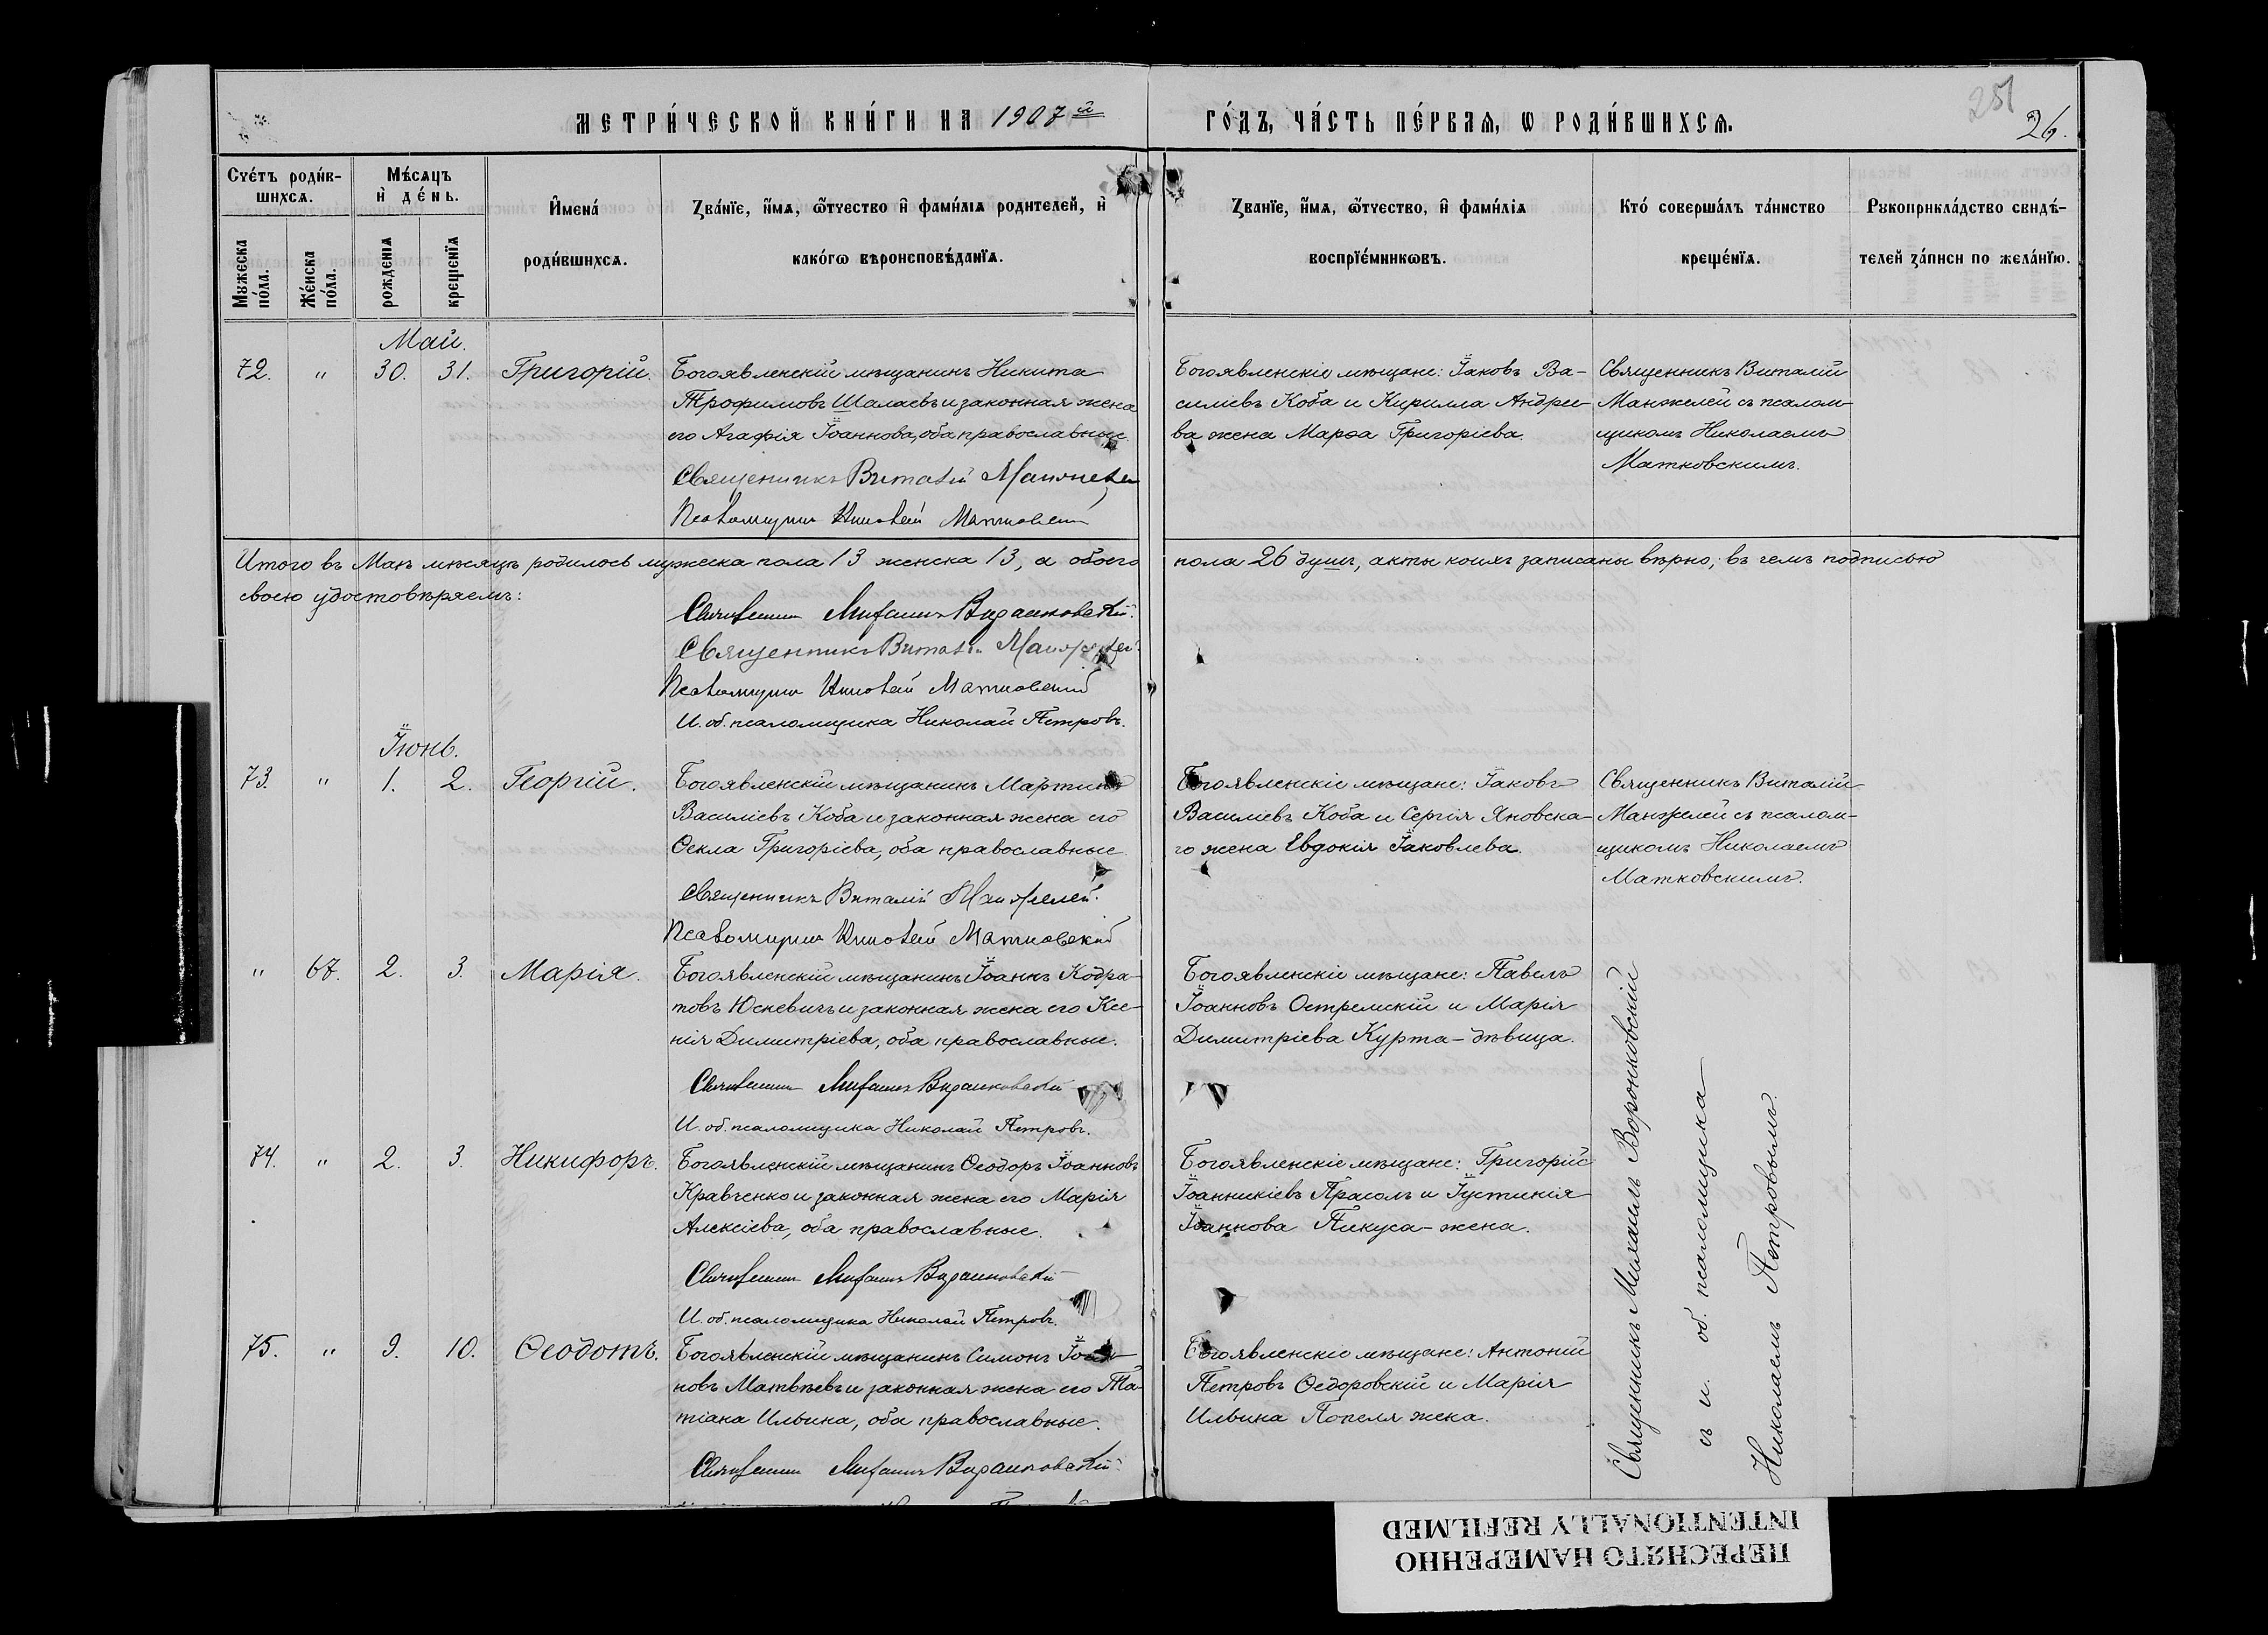 МЕТРИ́ЧЕСКОЙ КНИ́ГИ НА 1907й ГО́ДЪ, ЧА́СТЬ ПЕ́РВАѦ, Ѡ РОДИ́ВШИХСѦ.
251
26.
Счє́тъ роди́в-
шихсѧ.
Мѣ́сѧцъ
и҆ де́нь.
Мꙋжєска
по́ла.
Же́нска
по́ла.
рождєнїѧ
крещенїѧ
И҆мена́
роди́вшихсѧ.
Зва́нїе, и҆́мѧ, ѻ҆́тчество и҆ фами́лїѧ родителей, и҆
како́гѡ вѣроисповѣ́данїѧ.
Званїе, и҆́мѧ, ѻ҆́тчество, и҆ фами́лїѧ
воспрїе́мникѡвъ.
Кто́ соверша́лъ та́инство
креще́нїѧ.
Рꙋкоприкла́дство свидѣ́-
телей за́писи по жела́нїю.
Май.
72. " 30. 31. Григорій.
Богоявленскій мѣщанинъ Никита
Трофимовъ Шалаевъ и законная жена
его Агафія Іоаннова, оба православные.
Священникъ Виталій Манжелей
Псаломщикъ Николай Матковскій
Богоявленскіе мѣщане: Іаковъ Ва-
силіевъ Коба и Кирилла Андрее-
ва жена Марѳа Григоріева.
Священникъ Виталій
Манжелей съ псалом-
щикомъ Николаемъ
Матковскимъ.
Итого въ Маѣ мѣсяцѣ родилось мужеска пола 13 женска 13, а обоего пола 26 душъ, акты коихъ записаны вѣрно, въ чемъ подписью
своею удостовѣряемъ:
Священникъ Михаилъ Воронковскій.
Священникъ Виталій Манжелей.
Псаломщикъ Николай Матковскій
И. об. псаломщика Николай Петровъ.
Іюнь.
73. " 1. 2. Георгій.
Богоявленскій мѣщанинъ Мартинъ
Василіевъ Коба и законная жена его
Ѳекла Григоріева, оба православные
Священникъ Виталій Манжелей.
Псаломщикъ Николай Матковскій
Богоявленскіе мѣщане: Іаковъ
Василіевъ Коба и Сергія Яновска-
го жена Евдокія Іаковлева.
Священникъ Виталій
Манжелей съ псалом-
щикомъ Николаемъ
Матковскимъ.
" 67. 2. 3. Марія.
Богоявленскій мѣщанинъ Іоаннъ Кодра-
товъ Юскевичъ и законная жена его Ксе-
нія Димитріева, оба православные.
Священникъ Михаилъ Воронковскій
И. об. псаломщика Николай Петровъ.
Богоявленскіе мѣщане: Павелъ
Іоанновъ Остремскій и Марія
Димитріева Курта - дѣвица.
74. " 2. 3. Никифоръ.
Богоявленскій мѣщанинъ Ѳеодоръ Іоанновъ
Кравченко и законная жена его Марія
Алексіева, оба православные.
Священникъ Михаилъ Воронковскій
И. об. псаломщика Николай Петровъ.
Богоявленскіе мѣщане: Григорій
Іоанникіевъ Прасолъ и Іустинія
Іоаннова Пикуса - жена.
75. " 9. 10. Ѳеодотъ.
Богоявленскій мѣщанинъ Симонъ Іоан-
новъ Матвѣевъ и законная жена его Та-
тіана Ильина, оба православные.
Священникъ Михаилъ Воронковскій
Богоявленскіе мѣщане: Антоній
Петровъ Ѳедоровскій и Марія
Ильина Попеля жена.
Священникъ Михаилъ Воронковскій
съ и. об. псаломщика
Николаемъ Петровымъ.
ПЕРЕСНЯТО НАМЕРЕННО
INTENTIONALLY REFILMED